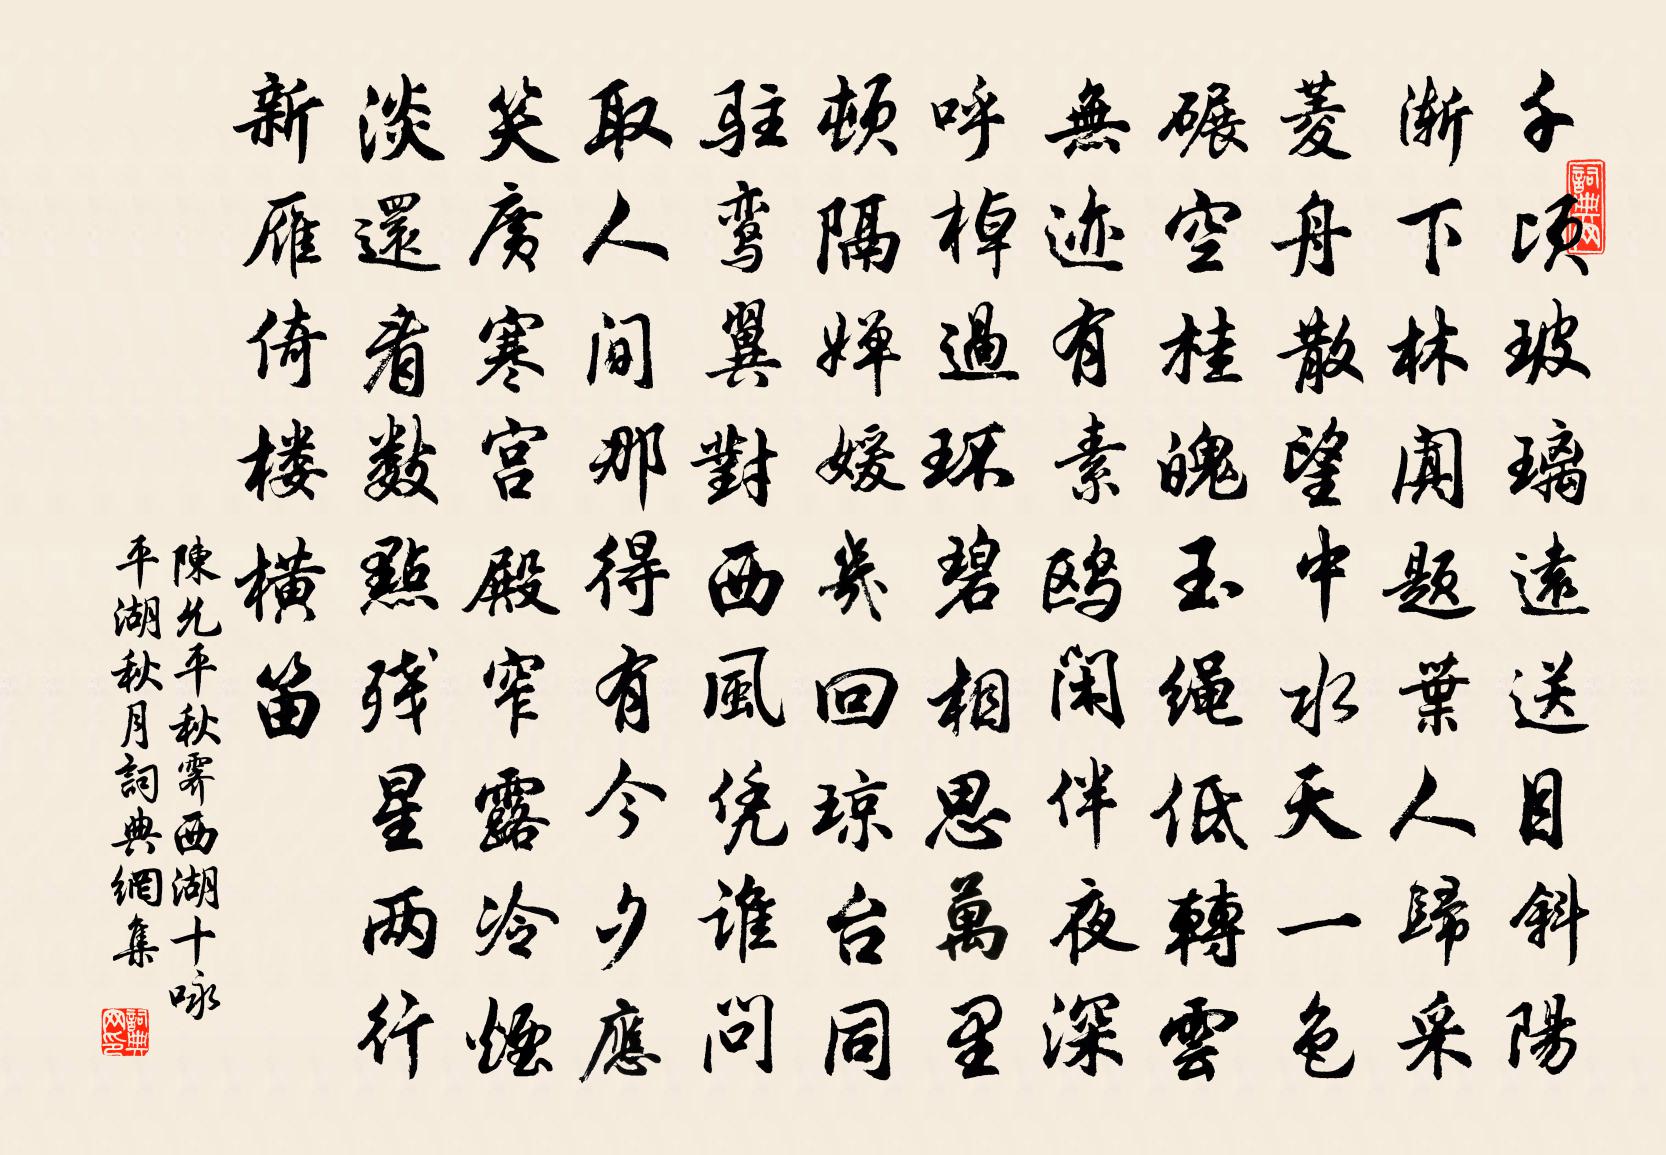 千頃玻璃遠送目斜陽
漸下林闃題葉人歸采
菱舟散望中水天一色
碾空桂魄玉绳低轉雲
無迹有素鸥闲伴夜深
呼棹過环碧相思萬里
頓隔婵媛幾回琼台同
驻鸾翼對西風凭谁問
取人间那得有今夕應
笑廣寒宫殿窄露冷煙
淡還看數點残星两行
新雁倚楼横笛
陳允平秋霁西湖十咏
平湖秋月詞典網集
詞典网
詞典网印